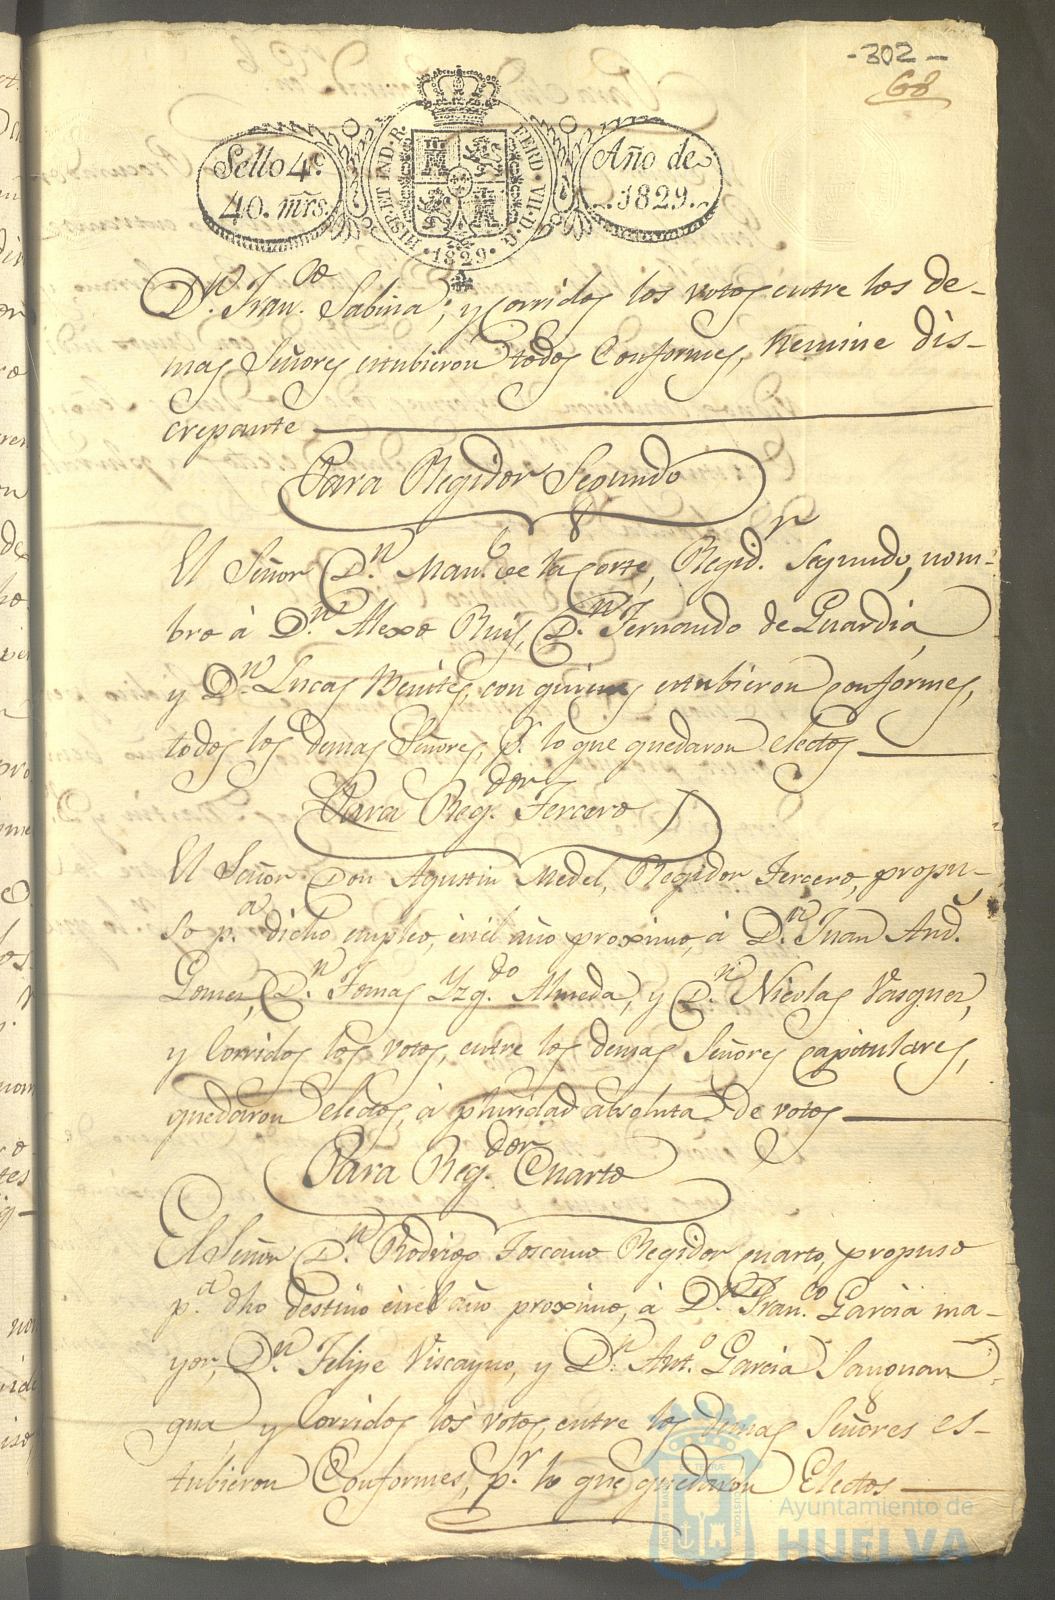 -302-
68
Sello 4º
40. mrs.
HISP. ET IND. R. FERD. VII. D. G.
·1829·
Año de
1829.
D.n Fran.co Sabina; y corridos los votos entre los de-
mas Señores estubieron todos Conformes, Nemine dis-
crepante
Para Regidor Segundo
El Señor D.n Man.l de la Corte, Regid.r Segundo, nom-
bro à D.n Alexo Ruiz, D.n Fernando de Guardia
y D.n Lucas Benites, con quienes estubieron conformes,
todos los demas Señores, p.r lo que quedaron electos
Para Reg.dor Tercero
El Señor Don Agustin Medel, Regidor Tercero, propu-
so p.a dicho empleo, en el año proximo, à D.n Juan And.s
Gomez, D.n Tomas Yzq.do Almeda, y D.n Nicolas Vasquez,
y Corridos los votos, entre los demas Señores capitulares,
quedaron electos, à pluridad absoluta de votos
Para Reg.dor Cuarto
El Señor D.n Rodrigo Toscano Regidor cuarto, propuso
p.a dho destino en el año proximo, à D.n Fran.co Garcia ma-
yor, D.n Felipe Viscayno, y D.n Ant.o Garcia
y Corridos los votos, entre los demas Señores es-
tubieron Conformes, p.r lo que quedaron Electos
Ayuntamiento de
HUELVA